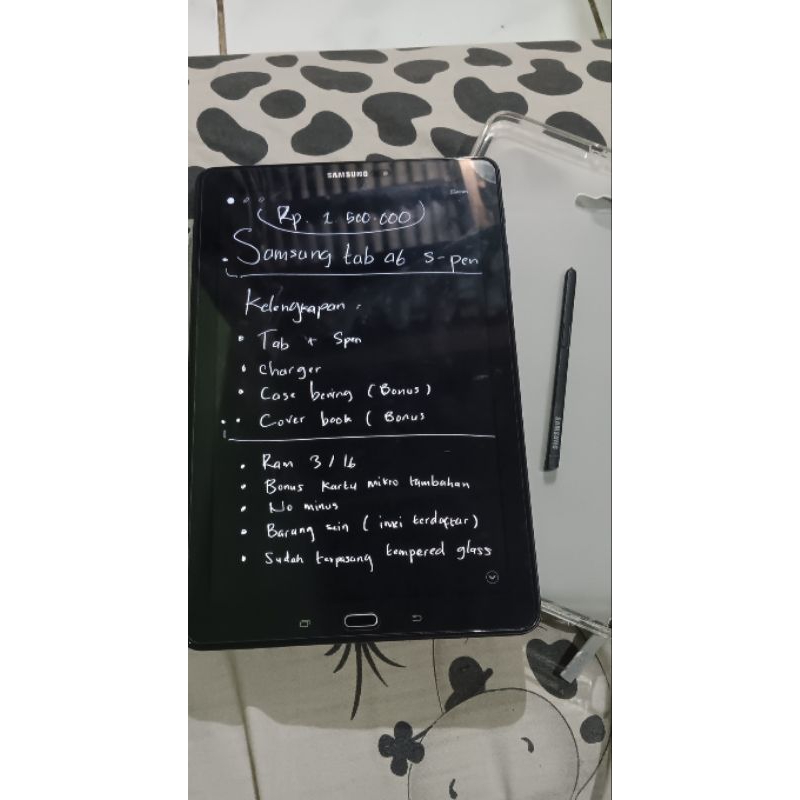 SAMSUNG
Rp. 1.500.000
Samsung tab a6 s-pen
Kelengkapan :
• Tab + Spen
• Charger
• Case bening (Bonus)
• Cover book ( Bonus
• Ram 3/16
• Bonus kartu mikro tambahan
• No minus
• Barang sein ( imei terdaftar)
• Sudah terpasang tempered glass
SAMSUNG